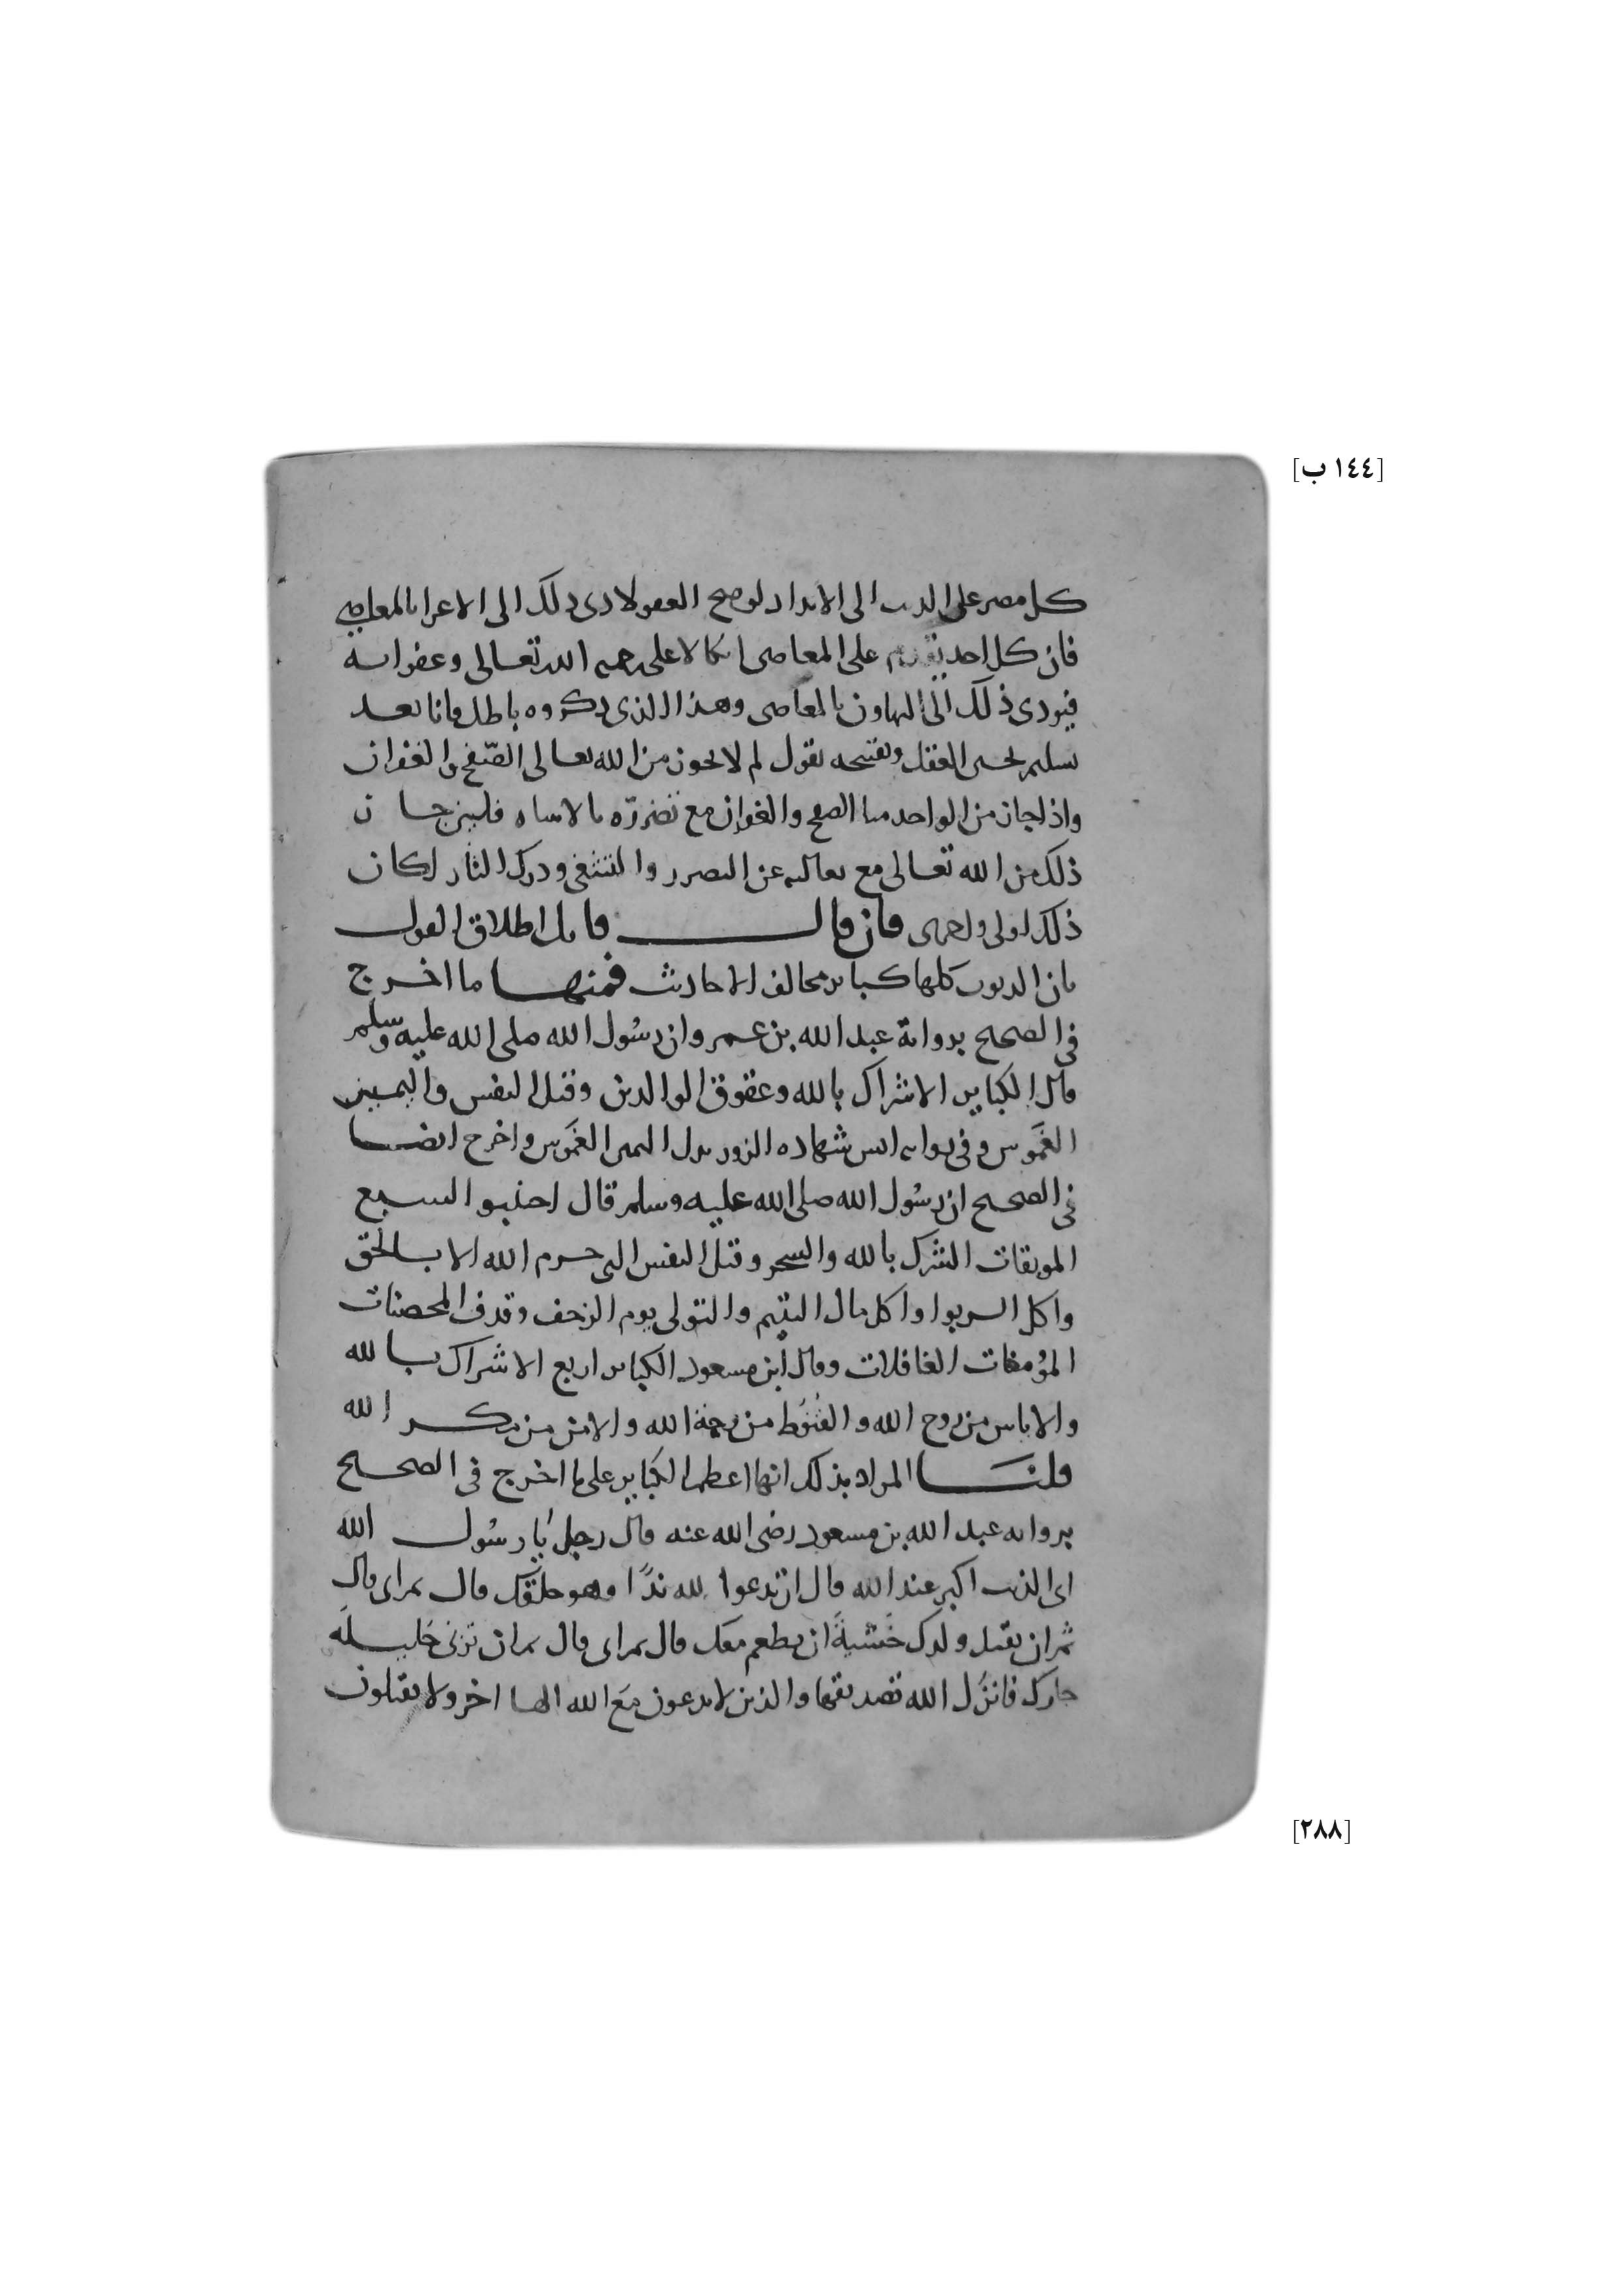 [١٤٤ ب]
كل مصر على الذنب الى الابد اذ لو صح العفو لادى ذلك الى الاغرا بالمعاصي
فان كل احد يقدم على المعاصي اتكالا على رحمة الله تعالى وغفرانه
فيودى ذلك الى التهاون بالمعاصى وهذا الذى ذكروه باطل فانا بعد
تسليم تحسين العقل وتقبيحه نقول لم لا يجوز من الله تعالى الصّفح والغفران
واذا جاز من الواحد منا الصفح والغفران مع تضرّره بالاساه فلين جاز
ذلك من الله تعالى مع تعاليه عن التضرر والتشفى ودرك الثار لكان
ذلك اولى واحرى فان قال قايل اطلاق القول
بان الذنوب كلها كباير مخالف الاحاديث فمنها ما اخرج
فى الصحيح برواية عبد الله بن عمرو ان رسُول الله صلى الله عليه وسلم
قال الكباير الاشراك بالله وعقوق الوالدين وقتل النفس واليمين
الغَموس وفى رواية انس شهاده الزور بدل اليمين الغَموس واخرج ايضا
فى الصحيح ان رسُول الله صلى الله عليه وسلم قال اجتنبوا السبع
الموبقات الشرك بالله والسحر وقتل النفس التى حرم الله الا بالحق
واكل الربوا واكل مال اليتيم والتولى يوم الزحف وقذف المحصنات
المؤمنات الغافلات وقال ابن مسعود الكباير اربع الاشراك بالله
والاياس من روح الله والقُنُوط من رحمة الله والامن من مكر الله
قلنا المراد بذلك انها اعظم الكباير على ما اخرج فى الصحيح
برواية عبد الله بن مسعود رضى الله عنه قال رجل يا رسُول الله
اى الذنب اكبر عند الله قال ان تدعوا لله ندًا وهو خلقك قال ثم اى قال
ثم ان تقتل ولدك خَشيةً ان يطعم معك قال ثم اى قال ثم ان تزنى حَليلة
جارك فانزل الله تصديقها والذين لا يدعون مَع الله الها اخر ولا يقتلون
[٢٨٨]